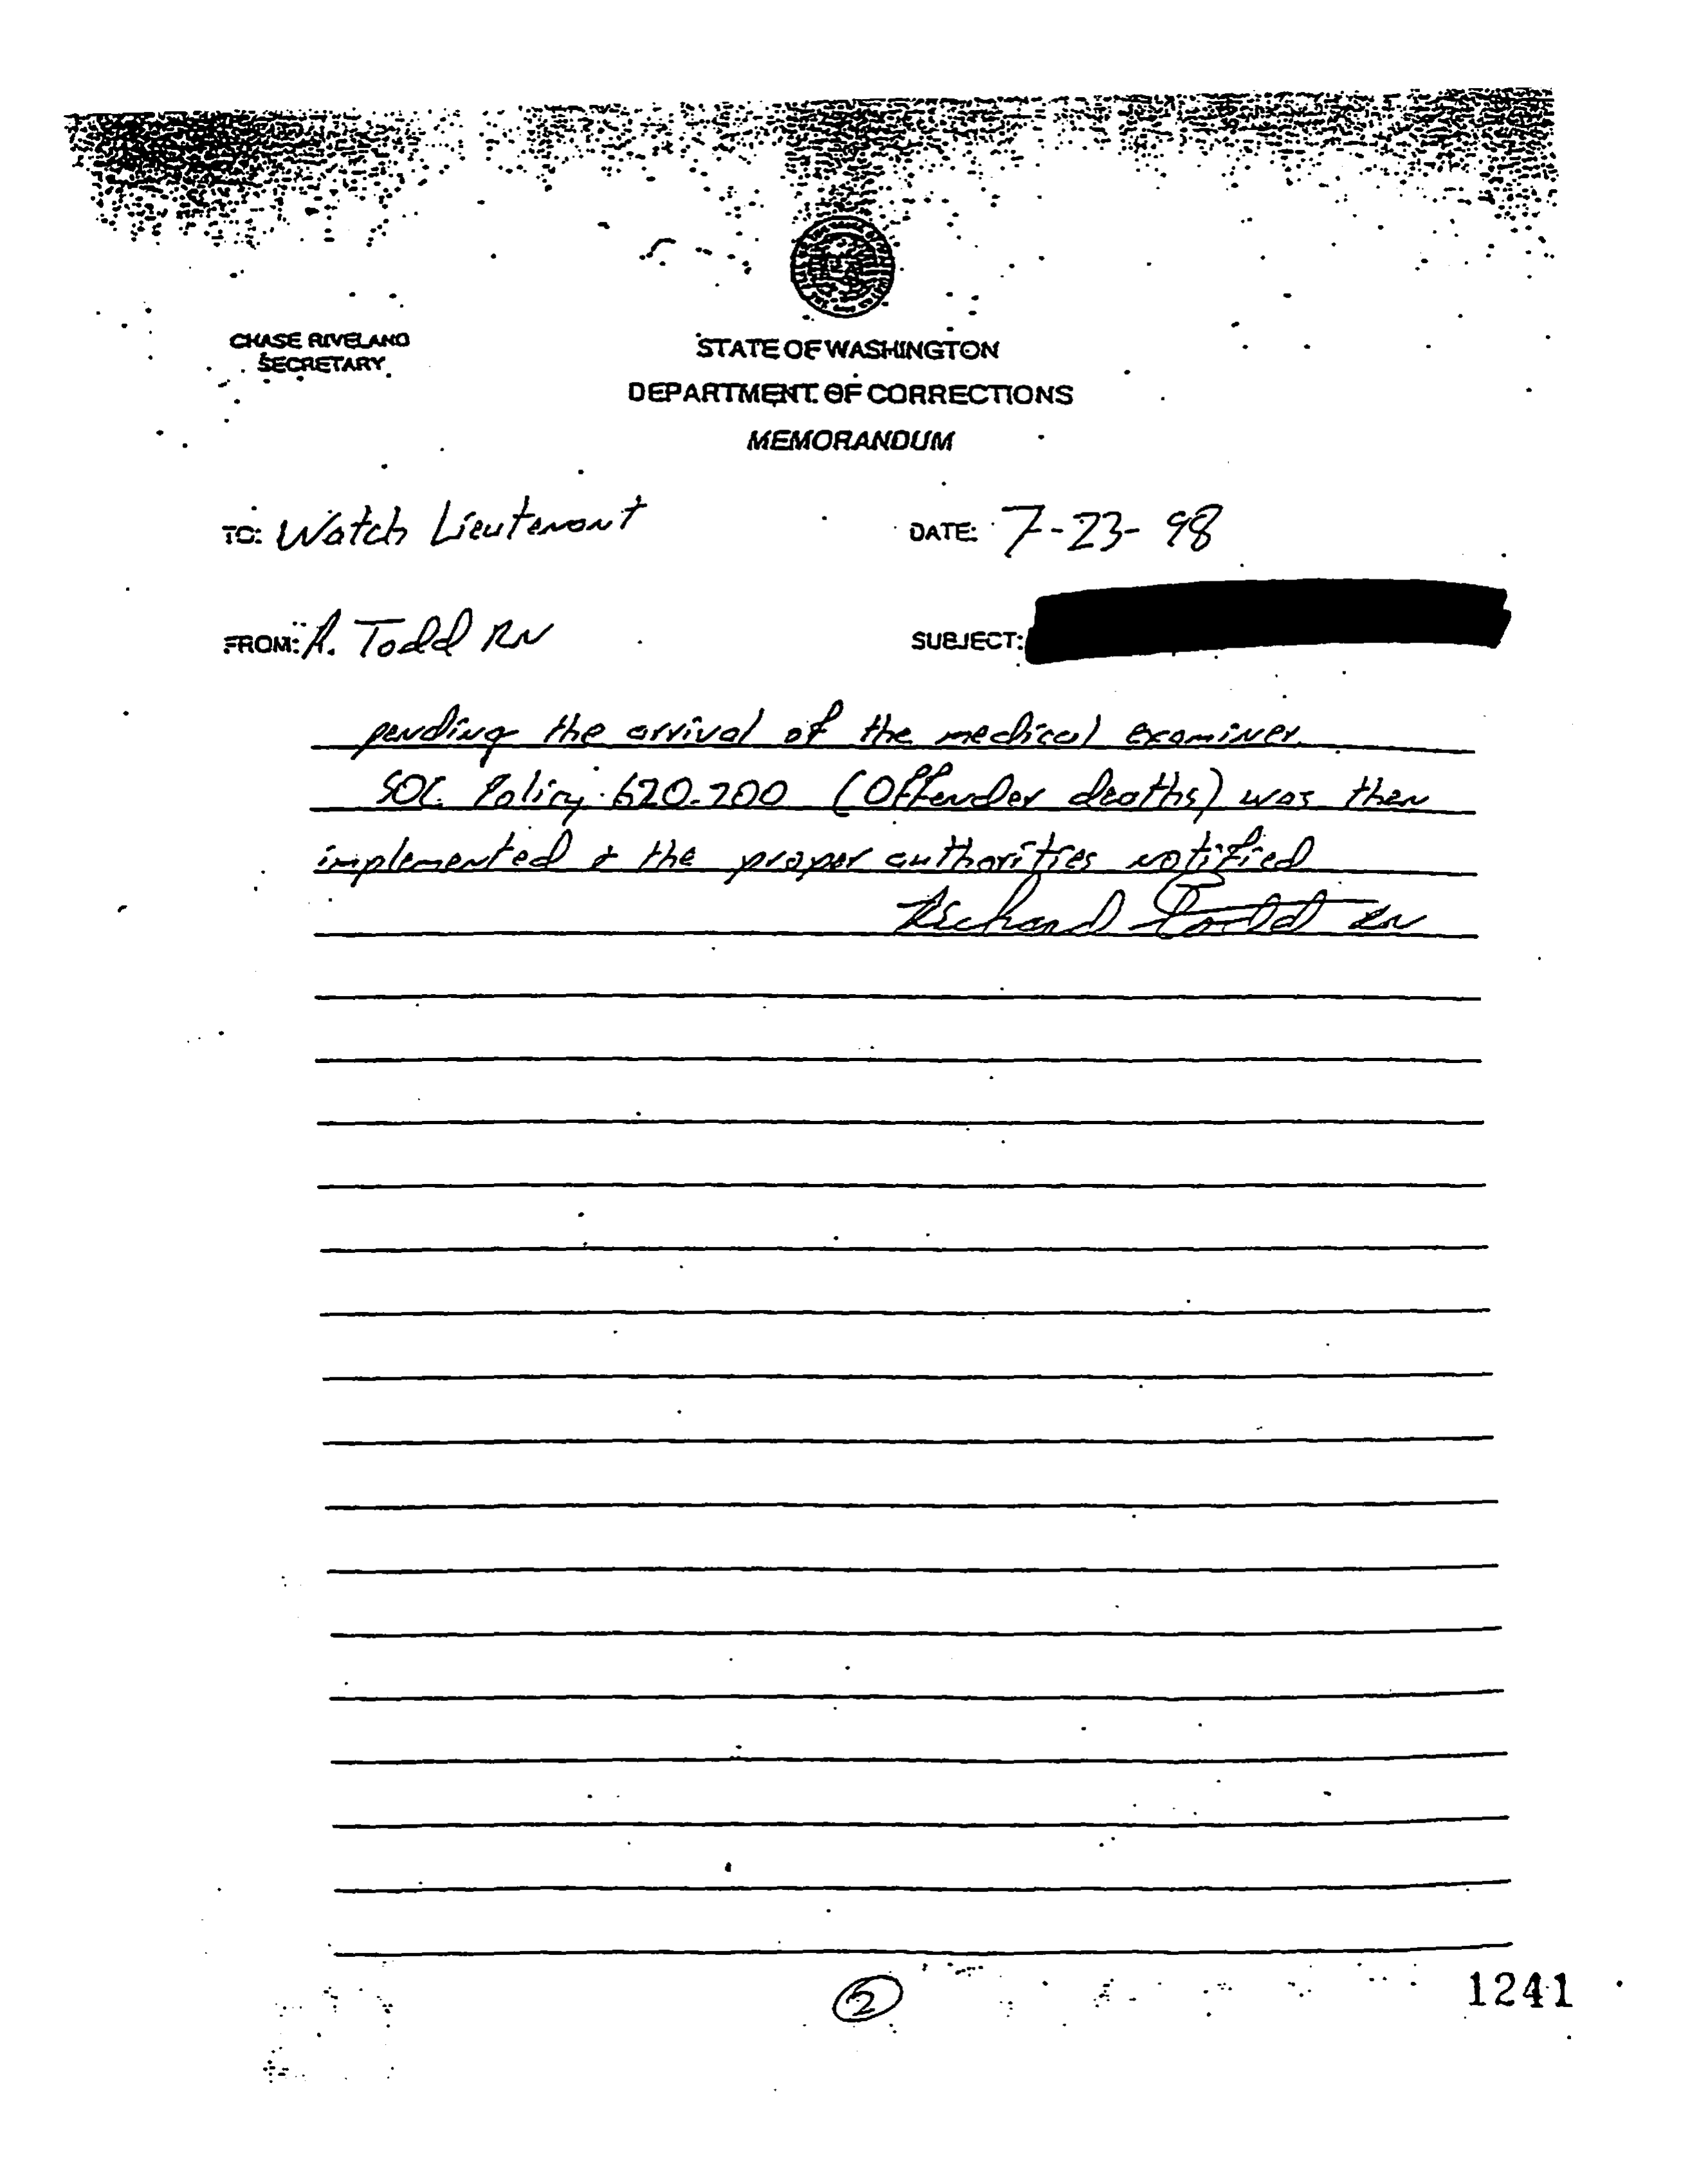 CHASE RIVELAND
SECRETARY
STATE OF WASHINGTON
DEPARTMENT OF CORRECTIONS
MEMORANDUM
TO: Watch Lieutenant
DATE: 7-23-98
FROM: R. Todd RN
SUBJECT:
pending the arrival of the medical examiner.
SOC Policy 620.200 (Offender deaths) was then
implemented & the proper authorities notified
Richard Todd RN
2
1241